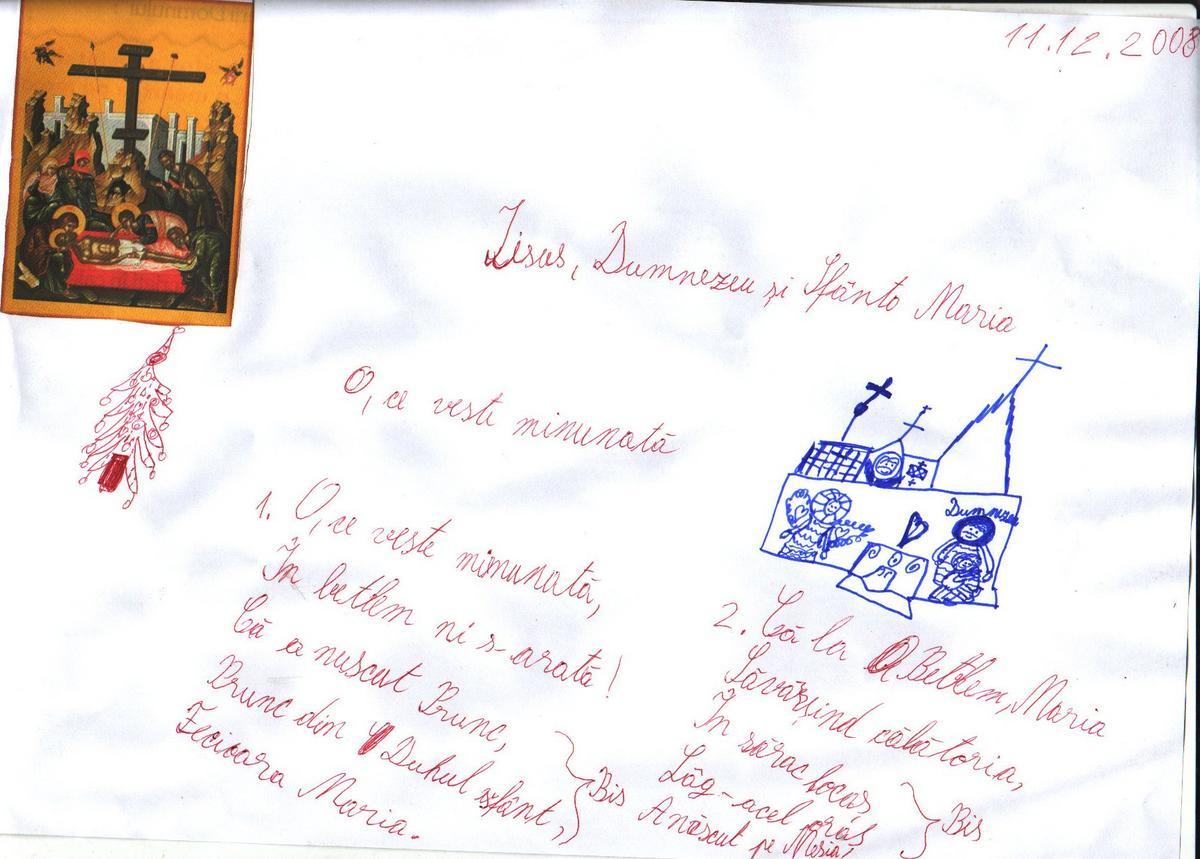 11.12.2008
Iisus, Dumnezeu și Sfânta Maria
O, ce veste minunată
Dumnezeu
1. O, ce veste minunată,
În betlem ni s-arată!
Că a nuscut Prunc,
Prunc din Duhul sfânt,
Fecioara Maria.
Bis
2. Că la Betlem, Maria
Săvârșind călătoria,
În sărac locaș,
Lâg-acel oraș
A născut pe Mesia!
Bis